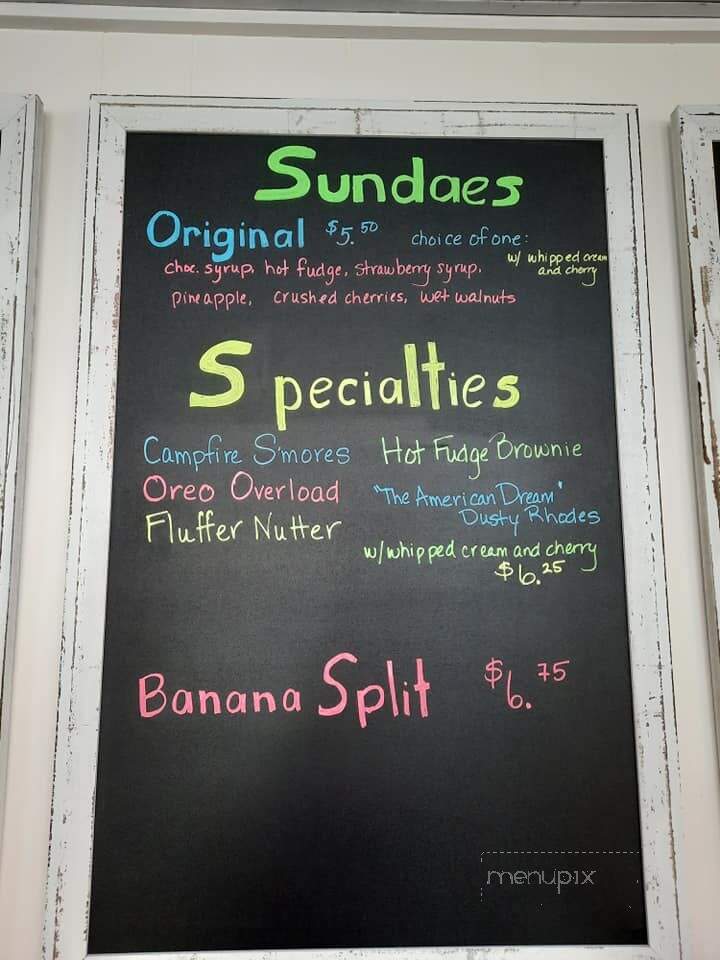 Sundaes
Original $5.50 choice of one:
w/ whipped cream
and cherry
choc. syrup, hot fudge, strawberry syrup,
pineapple, crushed cherries, wet walnuts
Specialties
Campfire S'mores Hot Fudge Brownie
Oreo Overload "The American Dream"
Dusty Rhodes
Fluffer Nutter
w/whipped cream and cherry
$6.25
Banana Split $6.75
menupix